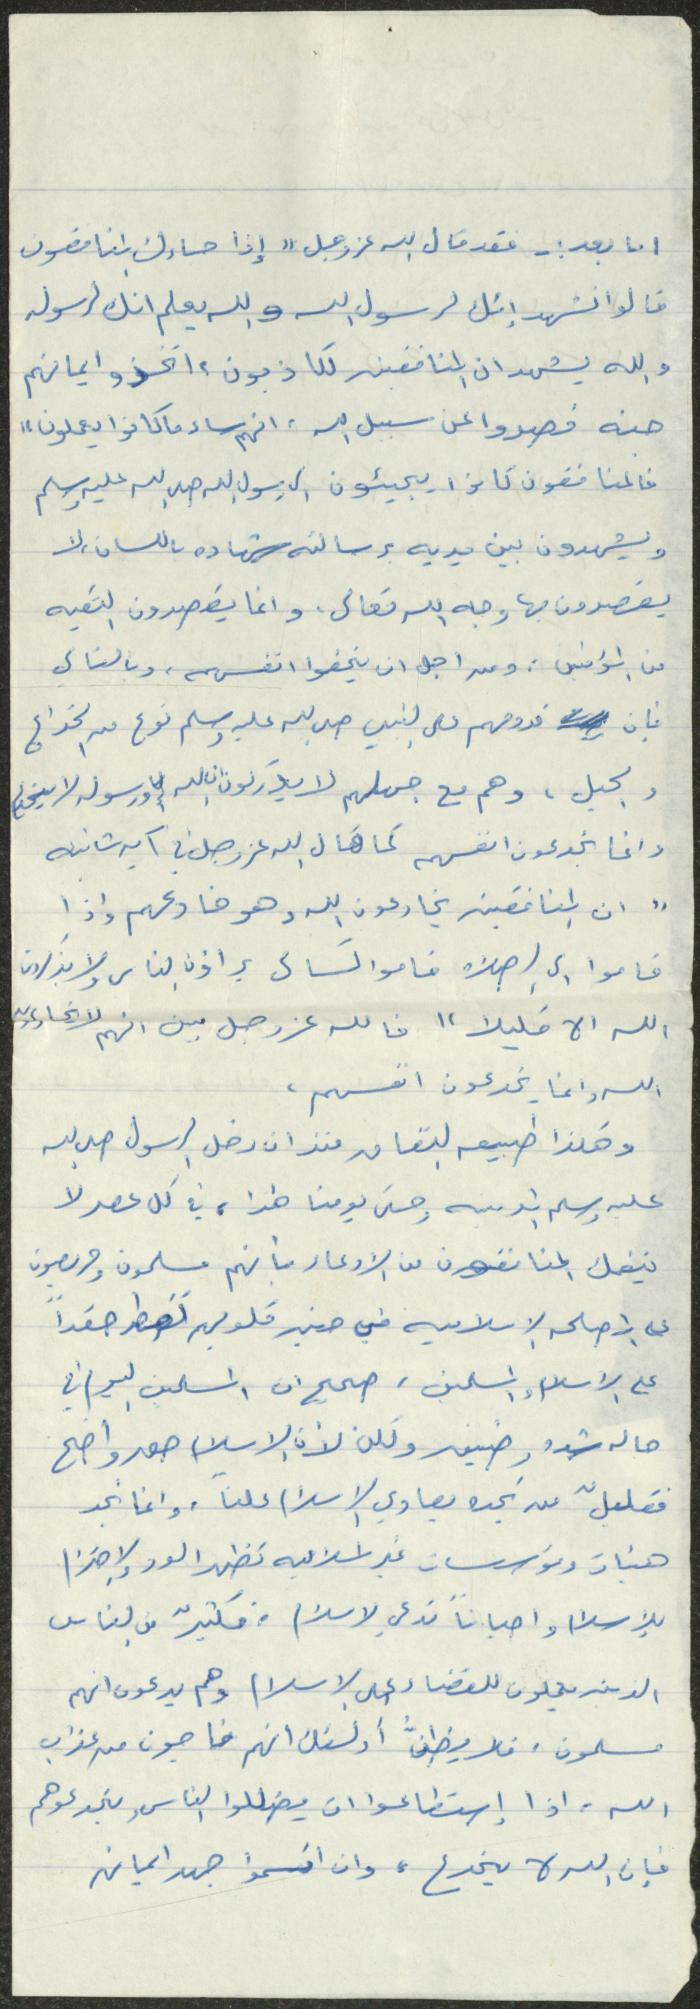 اما بعد :- فقد قال الله عز وجل " إذا جاءك المنافقون
قالوا نشهد إنك لرسول الله والله يعلم انك لرسوله
والله يشهد ان المنافقين لكاذبون ، اتخذوا ايمانهم
جنه فصدوا عن سبيل الله ، انهم ساء ما كانوا يعملون "
فالمنافقون كانوا يجيئون الى رسول الله صلى الله عليه وسلم
ويشهدون بين يديه برسالته شهاده باللسان ، لا
يقصدون بها وجه الله تعالى ، وانما يقصدون التقيه
من المؤمنين ، ومن اجل ان يخفوا انفسهم ، وبالتالي
فإن قدومهم على النبي صلى الله عليه وسلم نوع من الخداع
والحيل ، وهم مع جهلهم لا يدركون ان الله ورسوله لا يخدع
وانما يخدعون انفسهم كما قال الله عز وجل في آيه ثانيه
" ان المنافقين يخادعون الله وهو خادعهم واذا
قاموا الى الصلاه قاموا كسالى يراؤن الناس ولا يذكرون
الله الا قليلا " فالله عز وجل بين انهم لا يخادعون
الله وانما يخدعون انفسهم ،
وهكذا طبيعه النفاق منذ ان دخل الرسول صلى الله
عليه وسلم المدينه وحتى يومنا هذا ، في كل عصر لا
ينفك المنافقون من الادعاء بأنهم مسلمون وحريصون
على المصلحه الإسلاميه في حين قلوبهم تقطر حقداً
على الاسلام والمسلمين ، صحيح ان المسلمين اليوم في
حاله شده وضيق ولكن لأن الاسلام حق واضح
فقليلٌ من تجده يعادي الاسلام علناً ، وانما تجد
هيئات ومؤسسات غير اسلاميه تظهر الود والاحترام
للإسلام واحياناً تدعي الاسلام ، فكثيرٌ من الناس
الذين يعملون للقضاء على الاسلام وهم يدعون انهم
مسلمون ، فلا يظنُّ أولئك انهم ناجون من عذاب
الله ، اذا إستطاعوا ان يضللوا الناس ويخدعوهم
فإن الله لا يخدع ، وان اقسموا جهد ايمانهم